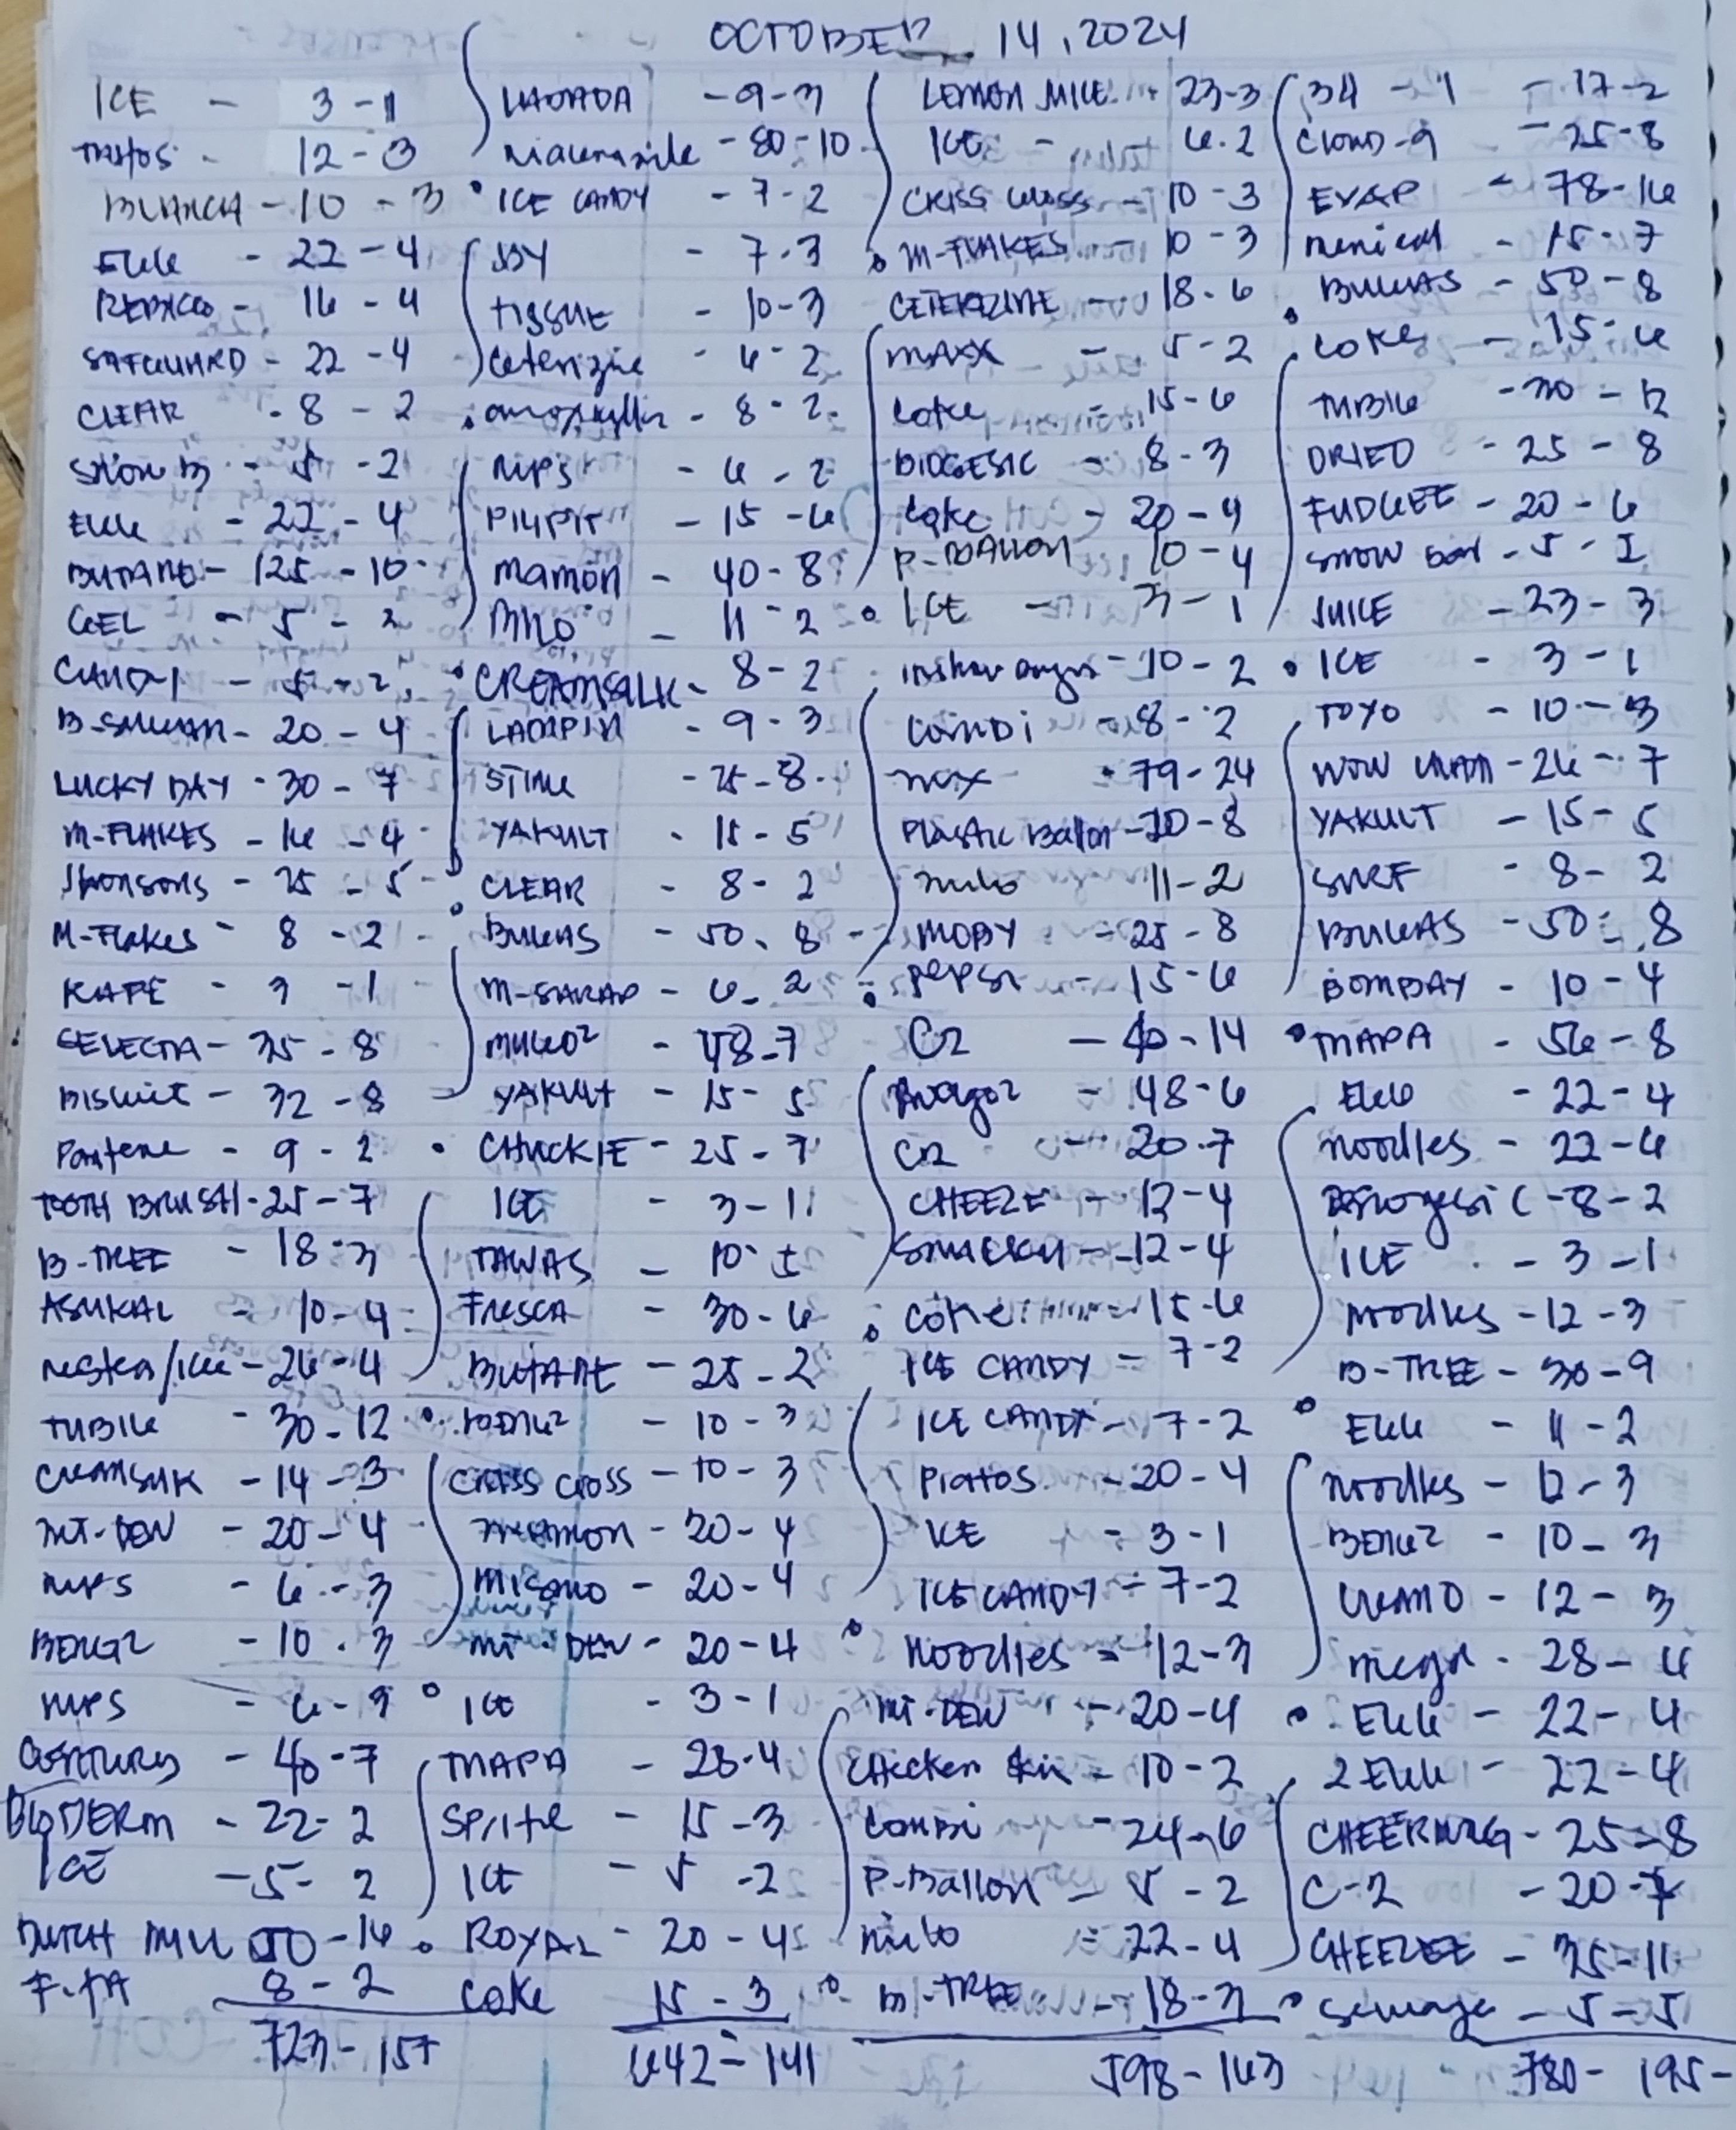 OCTOBER 14, 2024
ICE - 3 - 1
12 - 3
10 - 3
22 - 4
REBISCO - 16 - 4
SAFEGUARD - 22 - 4
CLEAR - 8 - 2
SNOW B - 5 - 2
22 - 4
BUTANE - 125 - 10
GEL - 5 - 2
CANDY - 5 - 2
20 - 4
LUCKY DAY - 30 - 7
M-FLAKES - 16 - 4
25 - 5
M-Flakes - 8 - 2
KAPE - 3 - 1
SELECTA - 35 - 8
BISCUIT - 32 - 8
Pantene - 9 - 2
TOOTH BRUSH - 25 - 7
B-TREE - 18 - 3
ASUKAL - 10 - 4
26 - 4
TUBIG - 30 - 12
CREAMSILK - 14 - 3
MT-DEW - 20 - 4
MPS - 6 - 3
BENG2 - 10 - 3
MPS - 6 - 3
CENTURY - 40 - 7
BIODERM - 22 - 2
ICE - 5 - 2
DUTCH MILL 50 - 16
8 - 2
723 - 157
9 - 3
80 - 10
ICE CANDY - 7 - 2
JOY - 7 - 3
TISSUE - 10 - 3
Ceterizine - 6 - 2
8 - 2
MPS - 6 - 2
PIYPIT - 15 - 6
mamon - 40 - 8
11 - 2
CREAMSILK - 8 - 2
LAMPIN - 9 - 3
25 - 8
YAKULT - 15 - 5
CLEAR - 8 - 2
BUKAS - 50 - 8
M-SARAP - 6 - 2
48 - 7
YAKULT - 15 - 5
CHUCKIE - 25 - 7
ICE - 3 - 1
TAWAS - 10 - 5
FRESCA - 30 - 6
BUTANE - 25 - 2
BENG2 - 10 - 3
CRISS CROSS - 10 - 3
MAMON - 20 - 4
20 - 4
MT-DEW - 20 - 4
ICE - 3 - 1
MAPA - 28 - 4
SPrite - 15 - 3
ICE - 5 - 2
ROYAL - 20 - 4
coke 15 - 3
642 - 141
LEMON JUICE 23 - 3
ICE - 6 - 2
CRISS CROSS - 10 - 3
M-FLAKES - 10 - 3
CETERIZINE - 18 - 6
MAXX - 5 - 2
Coke - 15 - 6
BIOGESIC - 8 - 3
Coke - 20 - 4
P-BALLON 10 - 4
ICE - 3 - 1
10 - 2
Combi - 8 - 2
79 - 24
Plastic Ballon - 20 - 8
milo 11 - 2
MOBY - 25 - 8
pepsi - 15 - 6
C2 - 40 - 14
48 - 6
C2 - 20 - 7
CHEEZE - 12 - 4
12 - 4
coke - 15 - 6
ICE CANDY - 7 - 2
ICE CANDY - 7 - 2
Piattos - 20 - 4
ICE - 3 - 1
ICE CANDY - 7 - 2
Noodles - 12 - 3
MT-DEW - 20 - 4
Chicken Skin - 10 - 2
Combi - 24 - 6
P-Ballon - 5 - 2
milo - 22 - 4
B-TREE - 18 - 3
598 - 163
17 - 2
CLOUD-9 - 25 - 8
EVAP - 78 - 16
15 - 7
BUKAS - 50 - 8
Coke - 15 - 6
TUBIG - 30 - 12
DRIED - 25 - 8
FUDGEE - 20 - 6
SNOW bar - 5 - 2
JUICE - 23 - 3
ICE - 3 - 1
TOYO - 10 - 3
WOW ULAM - 26 - 7
YAKULT - 15 - 5
SURF - 8 - 2
BUKAS - 50 - 8
BOMBAY - 10 - 4
MAPA - 56 - 8
22 - 4
noodles - 22 - 6
8 - 2
ICE - 3 - 1
noodles - 12 - 3
B-TREE - 30 - 9
11 - 2
noodles - 12 - 3
BENG2 - 10 - 3
CREAMO - 12 - 3
mega - 28 - 6
22 - 4
22 - 4
CHEERING - 25 - 8
C-2 - 20 - 7
CHEEZEE - 35 - 11
5 - 5
780 - 195 -